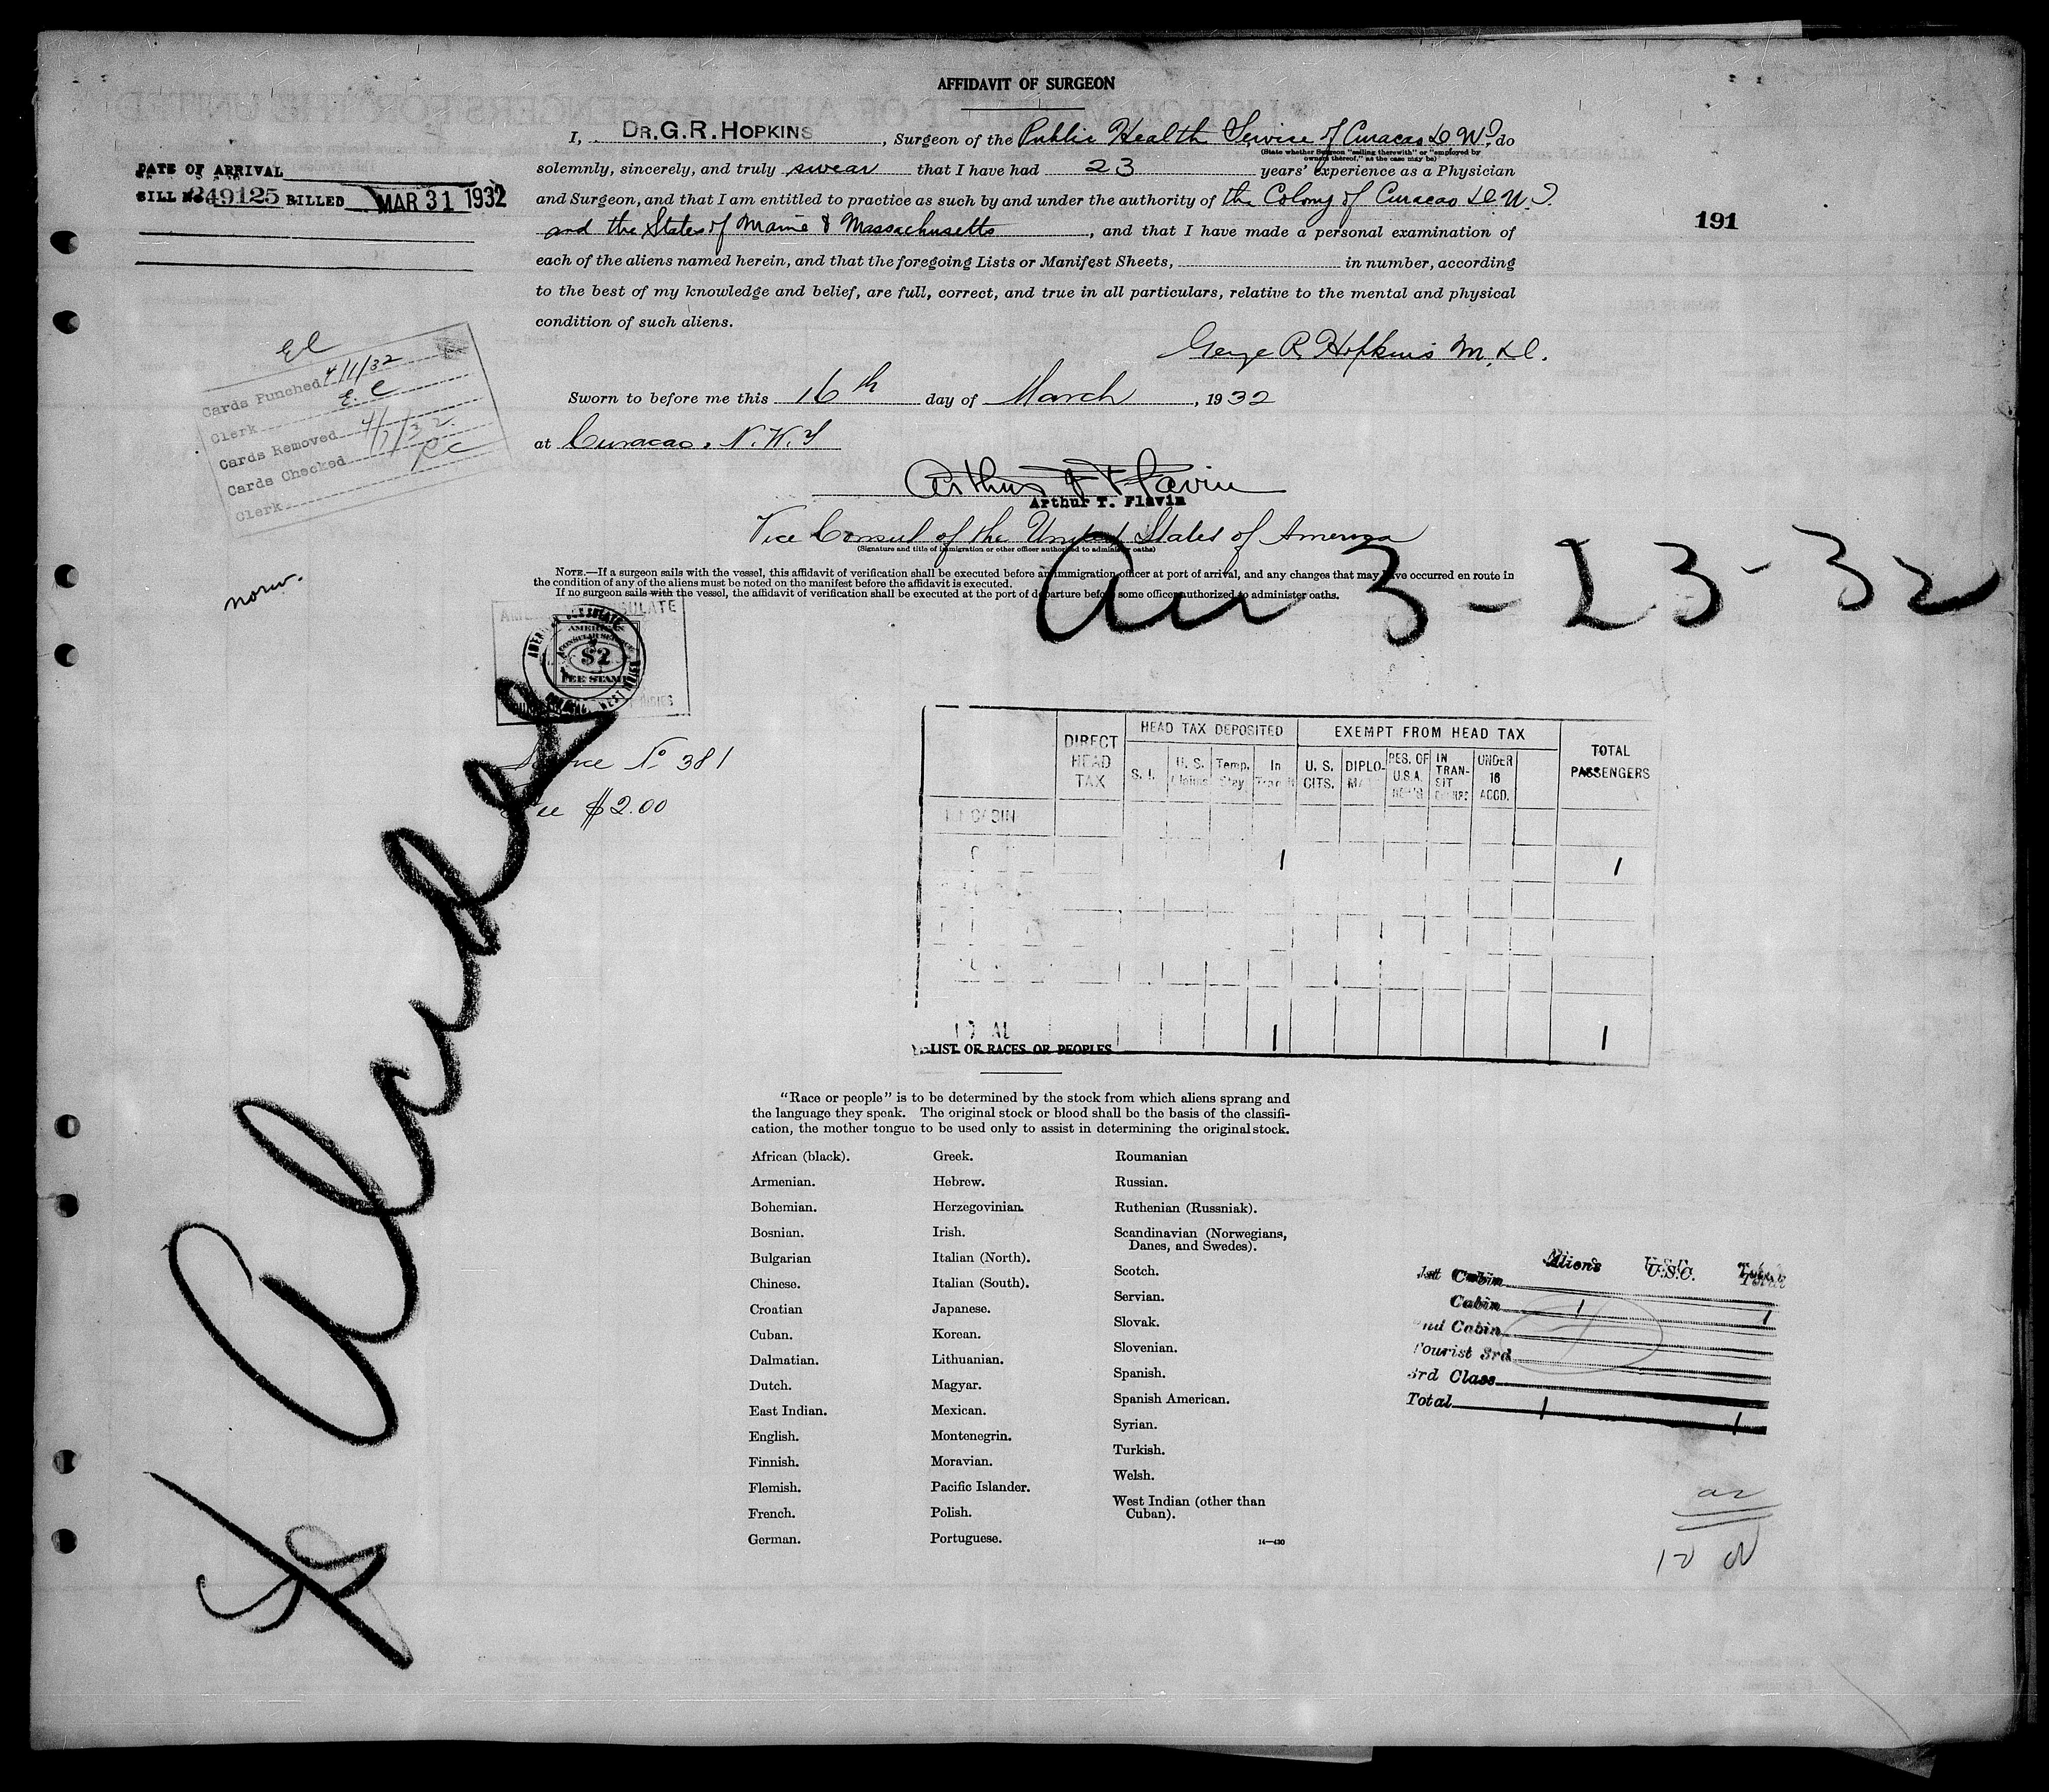 AFFIDAVIT OF SURGEON
I, DR. G. R. HOPKINS, Surgeon of the Public Health Service of Curacao D.W.I. do
(State whether Surgeon "sailing therewith" or "employed by
owners thereof," as the case may be)
solemnly, sincerely, and truly swear that I have had 23 years' experience as a Physician
and Surgeon, and that I am entitled to practice as such by and under the authority of the Colony of Curacao D.W.I.
and the States of Maine & Massachusetts, and that I have made a personal examination of
each of the aliens named herein, and that the foregoing Lists or Manifest Sheets, in number, according
to the best of my knowledge and belief, are full, correct, and true in all particulars, relative to the mental and physical
condition of such aliens.
George R. Hopkins M.D.
Sworn to before me this 16th day of March, 1932
at Curacao, N.W.I
Arthur T. Flavin
Arthur T. Flavin
Vice Consul of the United States of America
(Signature and title of immigration or other officer authorized to administer oaths)
NOTE.—If a surgeon sails with the vessel, this affidavit of verification shall be executed before an immigration officer at port of arrival, and any changes that may have occurred en route in
the condition of any of the aliens must be noted on the manifest before the affidavit is executed.
If no surgeon sails with the vessel, the affidavit of verification shall be executed at the port of departure before some officer authorized to administer oaths.
DATE OF ARRIVAL
BILL No. 249125 BILLED MAR 31 1932
191
El
Cards Punched 4/1/32
Clerk E.C
Cards Removed 4/1/32.
Cards Checked RC
Clerk
Arr 3-23-32
AMERICAN CONSULATE
AMERICAN
CONSULAR SERVICE
$2
FEE STAMP
Service No. 381
Fee $2.00
DIRECT HEAD TAX
HEAD TAX DEPOSITED
S. I.
U. S. Claims
Temp. Stay
In Transit
EXEMPT FROM HEAD TAX
U. S. CITS.
DIPLOMATS
RES. OF U.S.A.
IN TRANSIT
UNDER 16 ACCD.
TOTAL PASSENGERS
CABIN
1 1
TOTAL 1 1
LIST OF RACES OR PEOPLES
"Race or people" is to be determined by the stock from which aliens sprang and
the language they speak. The original stock or blood shall be the basis of the classifi-
cation, the mother tongue to be used only to assist in determining the original stock.
African (black).
Armenian.
Bohemian.
Bosnian.
Bulgarian
Chinese.
Croatian
Cuban.
Dalmatian.
Dutch.
East Indian.
English.
Finnish.
Flemish.
French.
German.
Greek.
Hebrew.
Herzegovinian.
Irish.
Italian (North).
Italian (South).
Japanese.
Korean.
Lithuanian.
Magyar.
Mexican.
Montenegrin.
Moravian.
Pacific Islander.
Polish.
Portuguese.
Roumanian
Russian.
Ruthenian (Russniak).
Scandinavian (Norwegians,
Danes, and Swedes).
Scotch.
Servian.
Slovak.
Slovenian.
Spanish.
Spanish American.
Syrian.
Turkish.
Welsh.
West Indian (other than
Cuban).
14—430
Aliens U.S.C. Total
1st Cabin
Cabin 1 1
2nd Cabin
Tourist 3rd
3rd Class
Total 1 1